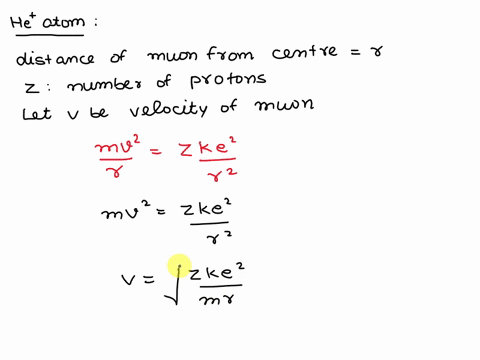 He⁺ atom :
distance of muon from centre = r
Z : number of protons
Let v be velocity of muon
mv²/r = Zke²/r²
mv² = Zke²/r²
v = √(Zke²/mr)